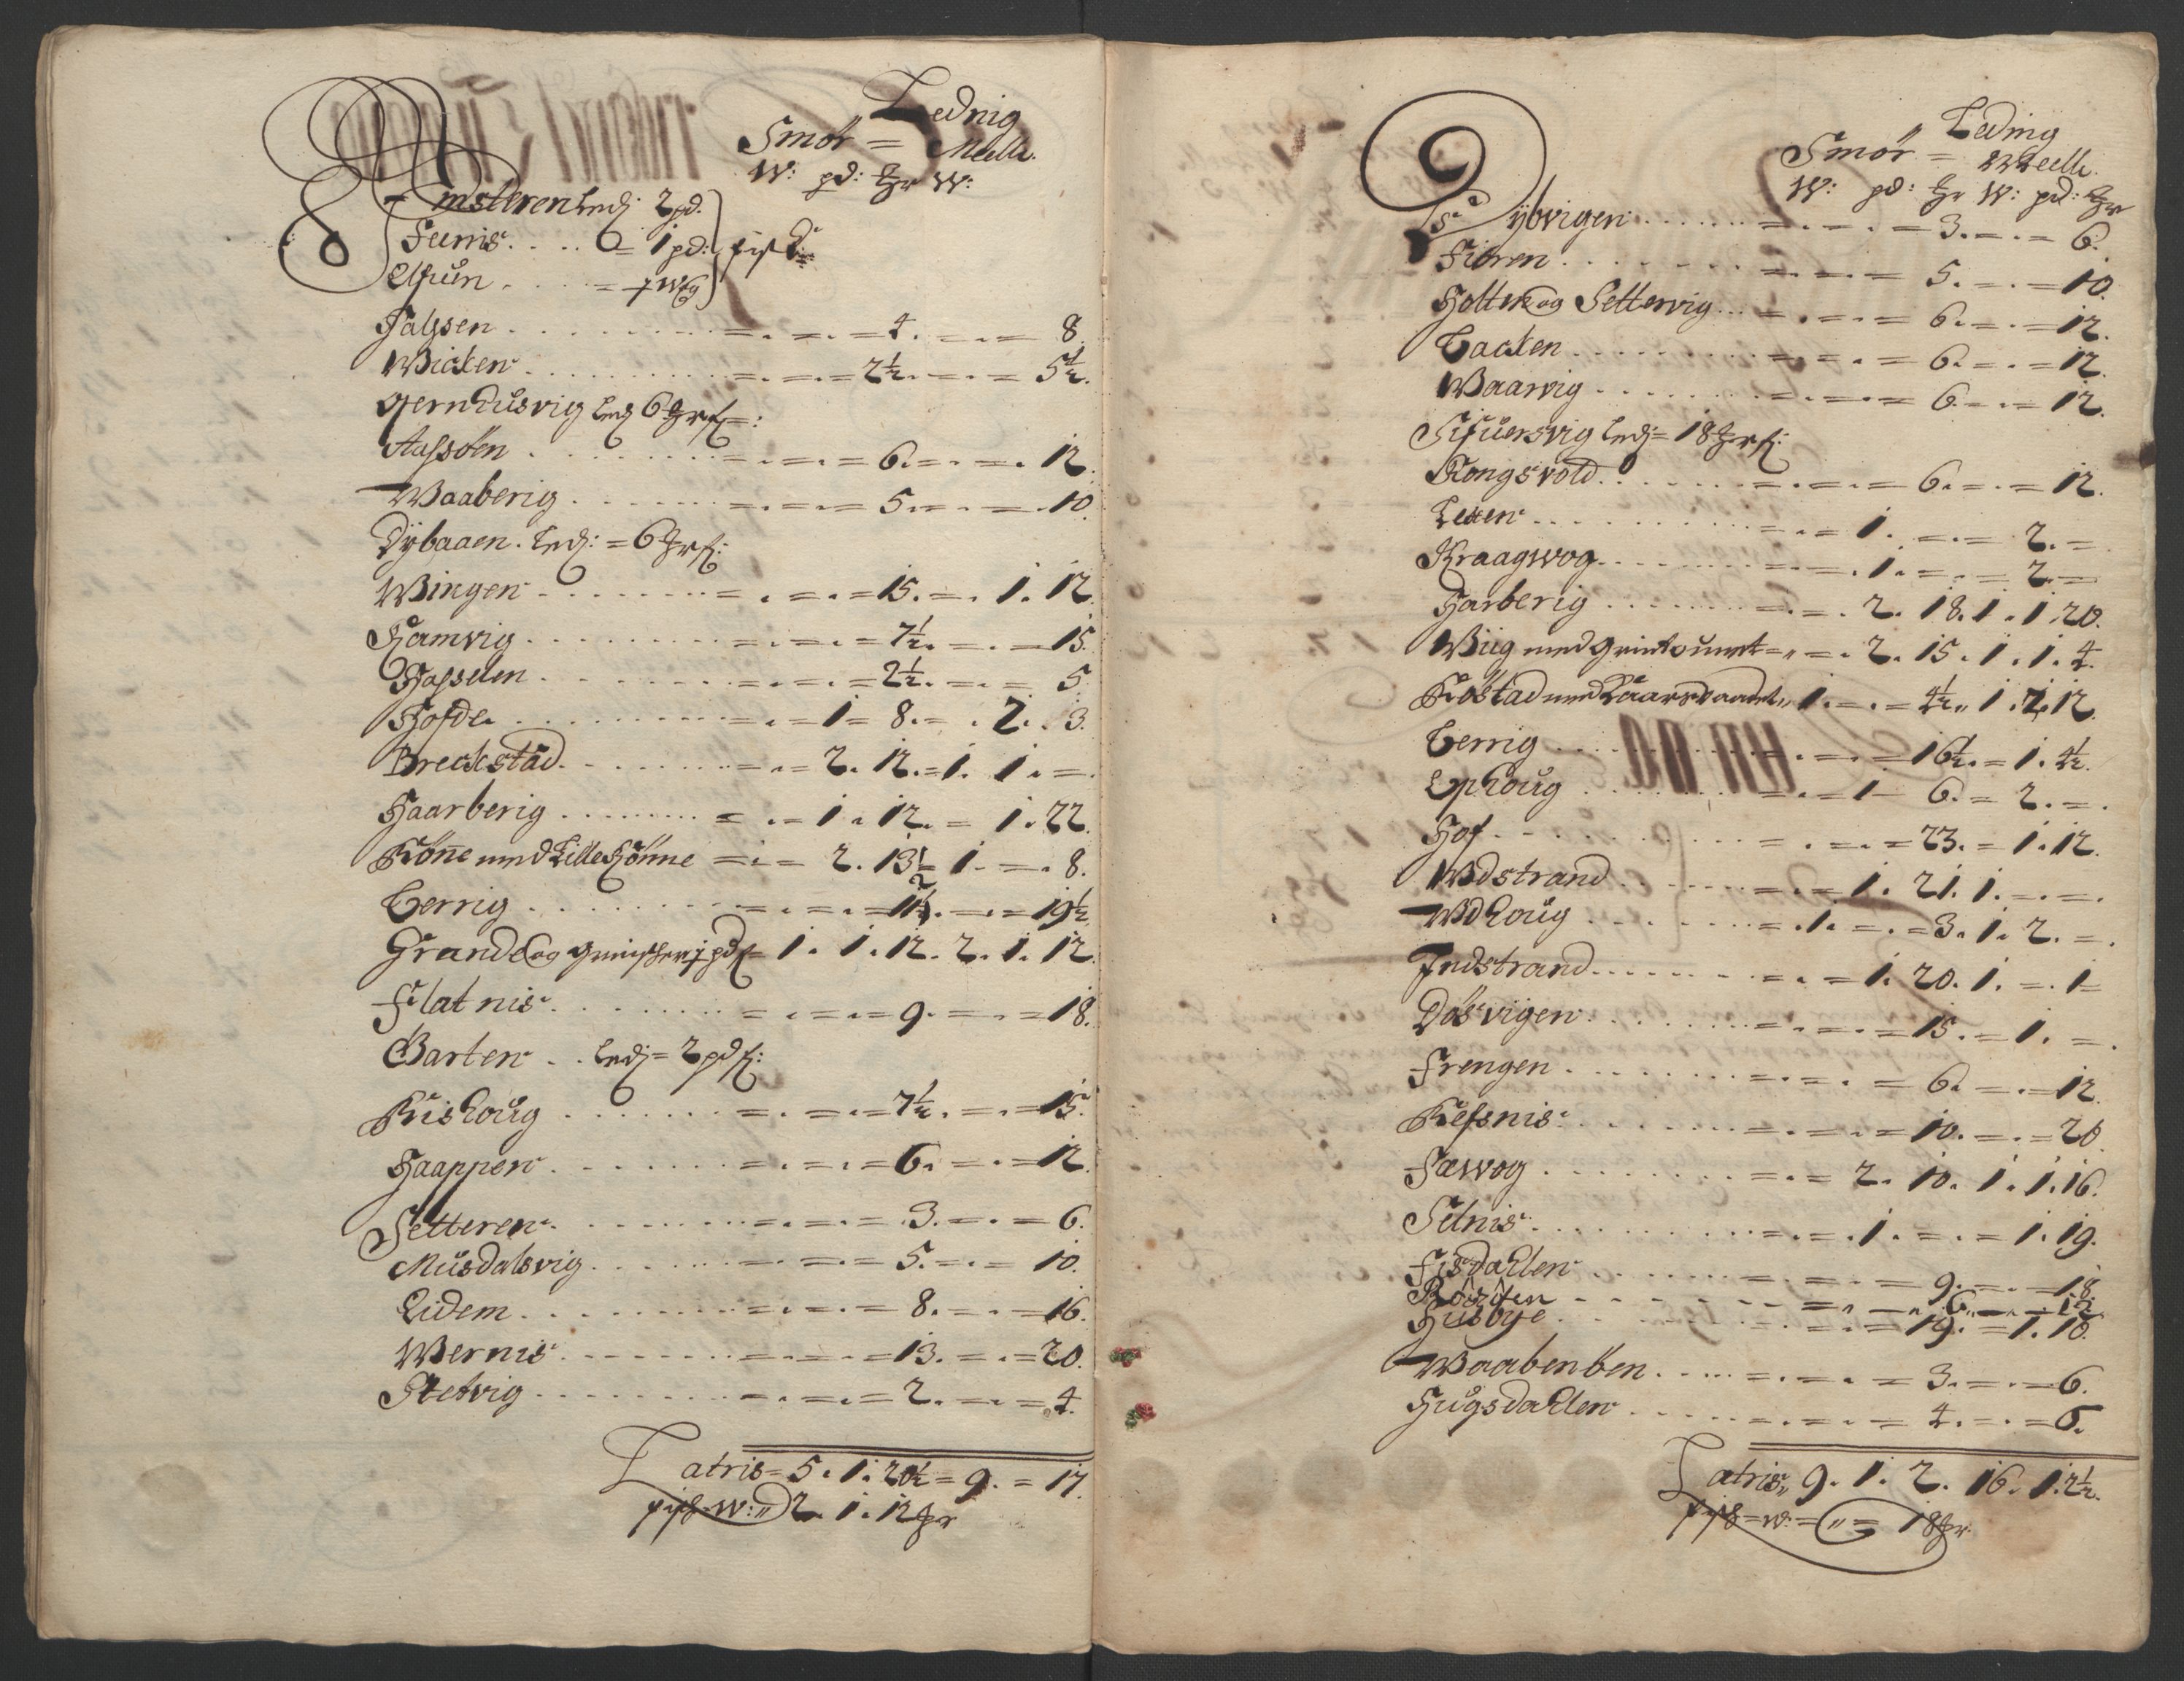 Lednig
Smör = Meell.
W: pd: W:
msteren Ledj: 2 pd.
Feenis. . . . = 1 pd:
Elfuen . . . =
Falssen . . . 4. = 8.
Wicken . . . 2½. = 5½.
Gerndusvig Ledj 6
Aassöen . . . 6. = 12.
Waaberig . . . 5. = 10.
Dÿbaaen. Ledj: = 6
Wingen . . . 15. = 1. 12.
Kamvig . . . 7½. = 15.
Hasselen . . . 2½. = 5.
Hofde . . . 1 = 8. = 2. 3.
Breckstad . . . 2. 12. = 1. 1. =
Haarberig . . . 1. 12. = 1. 22.
Rönne med Lille Rönne = 2. 13½ 1. = 8.
Berrig . . . 11½. = 19½
Grande og = 1. 1. 12. 2. 1. 12.
Flatnis . . . 9. = 18.
Garten . . Ledj = 2 pd
Rishoug . . . 7½. = 15.
Haappen . . . 6. = 12.
Setteren . . . 3. = 6.
Musdalsvig . . . 5. = 10.
Eidem . . . 8. = 16.
Wernis . . . 13. = 20.
Stetvig . . . 2. = 4.
Latris = 5. 1. 20½ = 9. = 17.
fisk = W: 2. 1. 12
Leding
Smör = Meell.
W: pd: W: pd:
ÿbvigen . . . 3. = 6.
Fioren . . . 5. = 10.
Holten og Settervig . . . 6. = 12.
Backen . . . 6. = 12.
Waarvig . . . 6. = 12.
Sifuersvig Ledj = 18
Kongsvold . . . 6. = 12.
Lexen . . . 1. = 2. =
Kraagwog . . . 1. = 2. =
Harberig . . . 2. 18. 1. 1. 20.
Wiig med = 2. 15. 1. 1. 4.
Röstad med 1. = 4½ 1. 12.
Berrig . . . 16½. = 1. 4½.
Ophoug . . . 1 = 6. = 2. =
Hof . . . 23. = 1. 12.
Wdstrand . . . 1. 21. 1. =
Wdhoug . . . 1. = 3. 1. 2. =
Indstrand . . . 1. 20. 1. = 1 =
Dösvigen . . . 15. = 1. =
Frengen . . . 6. = 12.
Refsnis . . . 10. = 20.
Sæwog . . . 2. 10. 1. 1. 16.
Selnis . . . 1. = 1. 19.
Fisdahlen . . . 9. = 18.
. . . 6. = 12.
Husbye . . . 19. = 1. 10.
Waabenöen . . . 3. = 6.
Hugsdahlen . . . 4. = 6.
Latris 9. 1. 2. 16. 1. 2½.
fisk = W: = 18